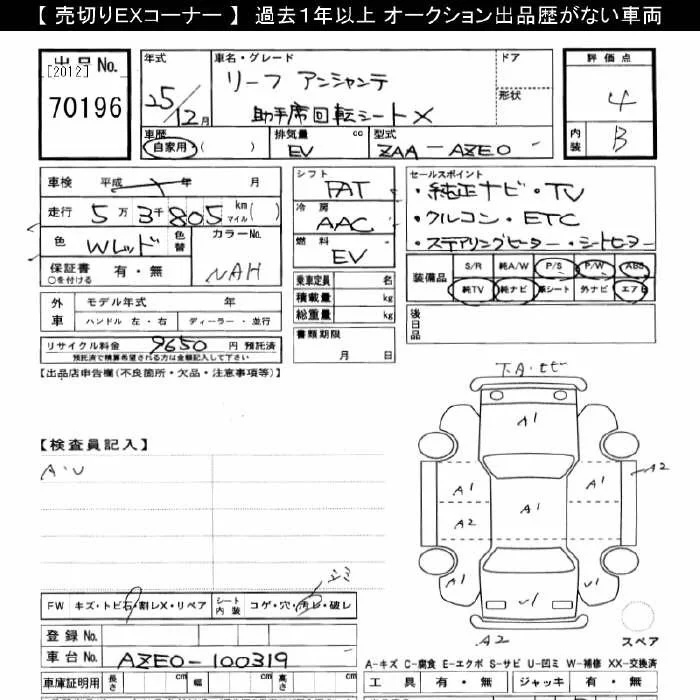 【 売切りEXコーナー 】 過去1年以上 オークション出品歴がない車両
出品No.
[2012]
70196
年式
25/12月
車名・グレード
リーフ アンシャンテ
助手席回転シートX
ドア
形状
評価点
4
内装
B
車歴
自家用・( )
排気量
EV cc
型式
ZAA-AZE0
車検 平成 年 月
走行 5万3千805 km マイル( )
色 Wレッド 色替
カラーNo.
NAH
保証書 有・無
○を付ける
シフト
FAT
冷房
AAC
燃料
EV
セールスポイント
・純正ナビ・TV
・クルコン・ETC
・ステアリングヒーター・シートヒーター
装備品 S/R 純A/W P/S P/W ABS
純TV 純ナビ 革シート 外ナビ エアB
乗車定員 名
積載量 kg
総重量 kg
外車
モデル年式 年
ハンドル 左・右 ディーラー・並行
後日品
リサイクル料金 9650 円 預託済
預託済で精算希望される方は金額記入して下さい
書類期限
月 日
【出品店申告欄(不良箇所・欠品・注意事項等)】
T.A・ヒビ
【検査員記入】
A・U
A1
A1
A1
A2
A1
A2
A1
A1
U1
U1
A2
FW キズ・トビ石・割レX・リペア シート内装 コゲ・穴・汚レ・破レ
シミ
登録No.
車台No. AZE0-100319
スペア
A-キズ C-腐食 E-エクボ S-サビ U-凹ミ W-補修 XX-交換済
車庫証明用 長さ cm 幅 cm 高さ cm
工具 有・無 ジャッキ 有・無